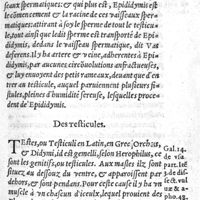 seaux spermatiques: & qui plus est, Epididymis est
le cõmencemẽt & la racine de ces vaisseaux sper-
matiques: attirant a soy le sperme de tout le testicu-
le, tout ainsi que ledit sperme est transporté de Epi-
didymis, dedans le vaisseau spermatique, dit Vas
deferens il y ha artere & veine, adherentes à Epidi-
dymis par aucunes circuvolutions anfractueuses,
& luy envoyent des petits rameaux, devant que d'en-
trer au testicule, auquel parviennent plusieurs fi-
stules, pleines d'humidité sereuse, lesquelles proce-
dent de Epididymis.
Des testicules.
Testes, ou Testiculi en Latin, en Grec Orcheis,
& Didymi, id est gemelli, selon Herophilus, ce
sont les genitifs, ou testicules. Aux masles ilz sont
situez au dessouz du ventre, & apparoissent par
dehors, & sont pendans. Pour ceste cause il y ha un
Gal. 14.
de vsu
part. lef
3. de dis-
sect. vul
ue & a-
pho. 48.